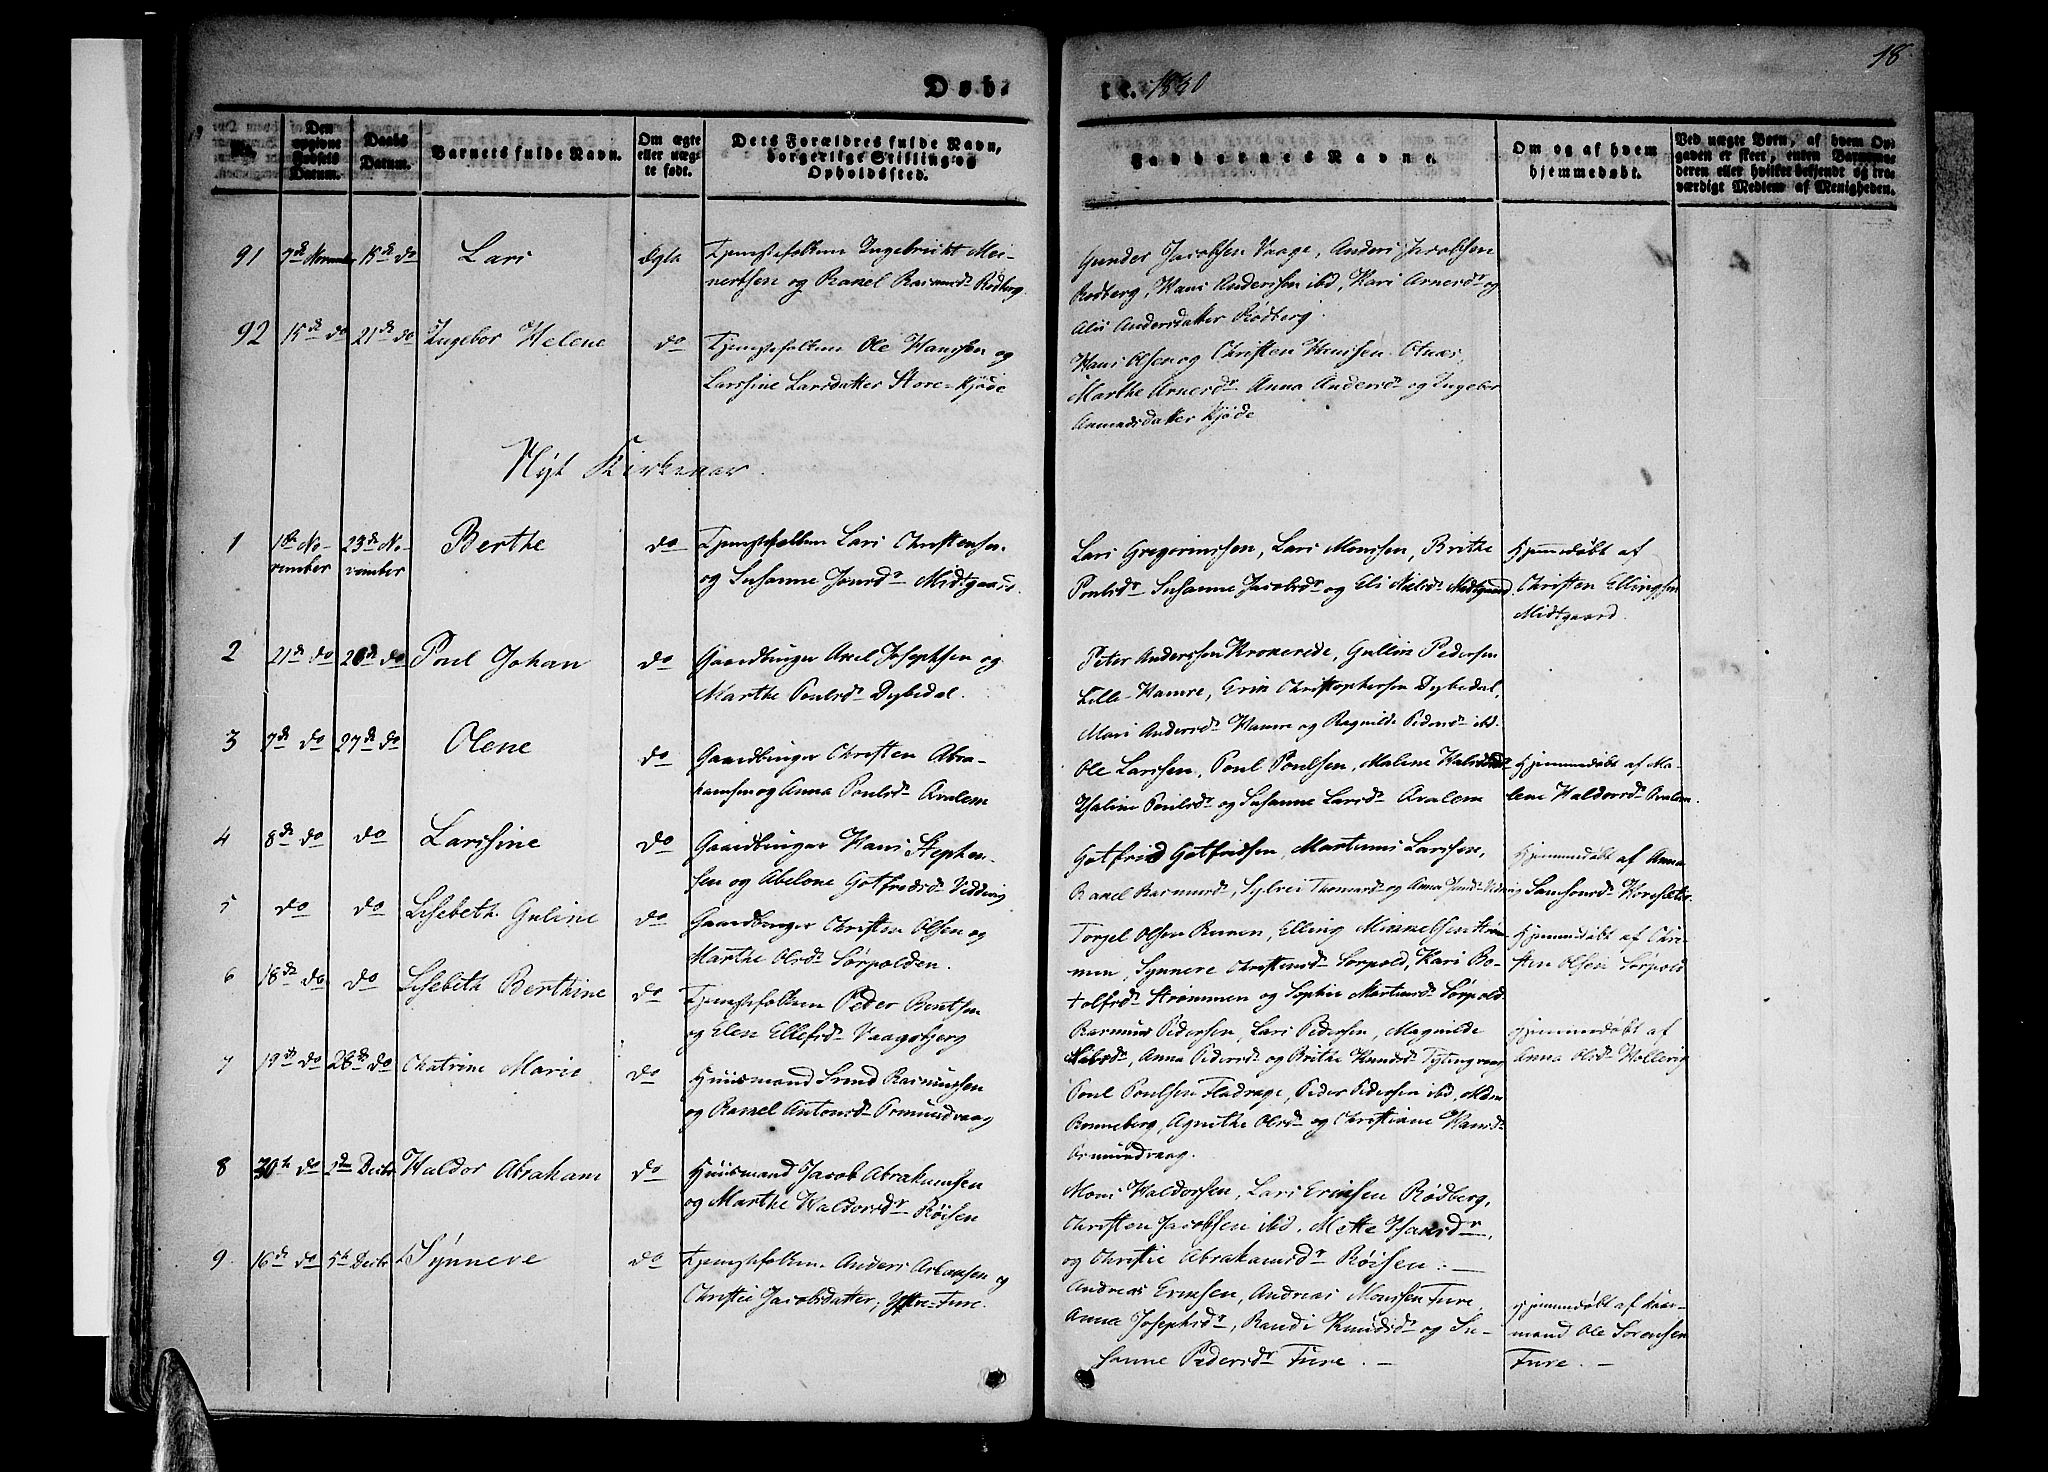 18
Døb- te. 1830
No.
Den opgivne Fødsels Datum.
Daabs Datum.
Barnets fulde Navn.
Om ægte eller uægte født.
Dets Forældres fulde Navn, borgerlige Stilling og Opholdssted.
Faddernes Navne.
Om og af hvem hjemmedøbt.
Ved uægte Børn, af hvem Opgaven er skeet, enten Barnemoderen eller hvilket bekjendt og troværdigt Medlem af Menigheden.
91 7de November 15de do Lars Ægte Tjenestefolkene Ingebrigt Mei-
nertsen og Rakel Rasmusdr Rødberg.
Gunder Jacobsen Vaage, Anders Jacobsen
Rødberg, Hans Andersen ibd, Kari Arnesdr og
Alis Andersdatter Rødberg.
92 15de do 21de do Ingebor Helene do Tjenestefolkene Ole Hansen og
Larssine Larsdatter Store-Kjøde
Hans Olsen og Christen Hansen Otnæs,
Marthe Arnesdr Anna Andersdr og Ingebor
Asmundsdatter Kjøde
Nyt Kirkeaar.
1 1ste No- 23de No- Berthe do Tjenestefolkene Lars Christensen
vember vember og Susanne Jonsdr Midtgaard.
Lars Gregoriussen, Lars Monssen, Brithe
Poulsdr Susanne Jacobsdr og Eli Nielsdr Midtgaard
Hjemmedøbt af
Christen Ellingsen
Midtgaard.
2 21de do 26de do Poul Johan do Gaardbruger Axel Josephsen og
Marthe Poulsdr Dybedal.
Peter Anderssen Kronereide, Gullik Pedersen
Lille-Hamre, Erik Christophersen Dybedal,
Mari Andersdr Hamre og Ragnilde Pedersdr ibd.
3 7de do 27de do Olene do Gaardbruger Christen Abra-
hamsen og Anna Poulsdr Aralem
Ole Larssen, Poul Poulsen, Malene Haldorsdr
Haline Poulsdr og Susanne Larsdr Aralem
Hjemmedøbt af Ma-
lene Haldorsdr Aralem.
4 8de do do Larssine do Gaardbruger Hans Stephen-
sen og Abelone Gotfredsdr Vedvig
Gotfred Gotfredsen, Martinus Larssen,
Rakel Rasmusdr, Sylvei Thomasdr og Anna Jensdr Vedvig
Hjemmedøbt af Anna
Samsonsdr Hovesæter.
5 do do Lisebeth Guline do Gaardbruger Christen Olsen og
Marthe Olsdr Sørpolden.
Torgel Olsen Rimen, Elling Mikkelsen Strøm-
men, Synneve Christensdr Sørpold, Kari Bo-
tolfsdr Strømmen og Sophie Martinusdr Sørpold
Hjemmedøbt af Chri-
sten Olsen Sørpold
6 18de do do Lisebeth Berthine do Tjenestefolkene Peder Bentsen
og Elen Ellefsdr Vaagsbjerg
Rasmus Pedersen, Lars Pedersen, Magnilde
Nilsdr, Anna Pedersdr og Brithe Knudsdr Tytingvaag
Hjemmedøbt af
Anna Olsdr Hollevig
7 19de do 28de do Chatrine Marie do Huusmand Svend Rasmussen
og Rakel Antonsdr Ormundvaag
Poul Poulsen Fladrage, Peder Pedersen ibd, Mdm
Ronneberg, Agnethe Olsdr og Christiane Hansdr
Ormundvaag.
8 30te do 2den Decbr Haldor Abraham do Huusmand Jacob Abrahamsen
og Marthe Haldorsdr Røisen
Mons Haldorsen, Lars Eriksen Rødberg,
Christen Jacobsen ibd, Mette Hansdr,
og Christie Abrahamsdr Røisen. —
9 16de do 5te Decbr Synneve do Tjenestefolkene Anders Absonsen og
Christie Jacobsdatter, Ytre-Fure.
Andreas Eriksen, Andreas Monssen Fure,
Anna Josephsdr, Randi Knudsdr og Su-
sanne Pedersdr Fure. —
Hjemmedøbt af Kaar-
mand Ole Sørensen
Fure. —